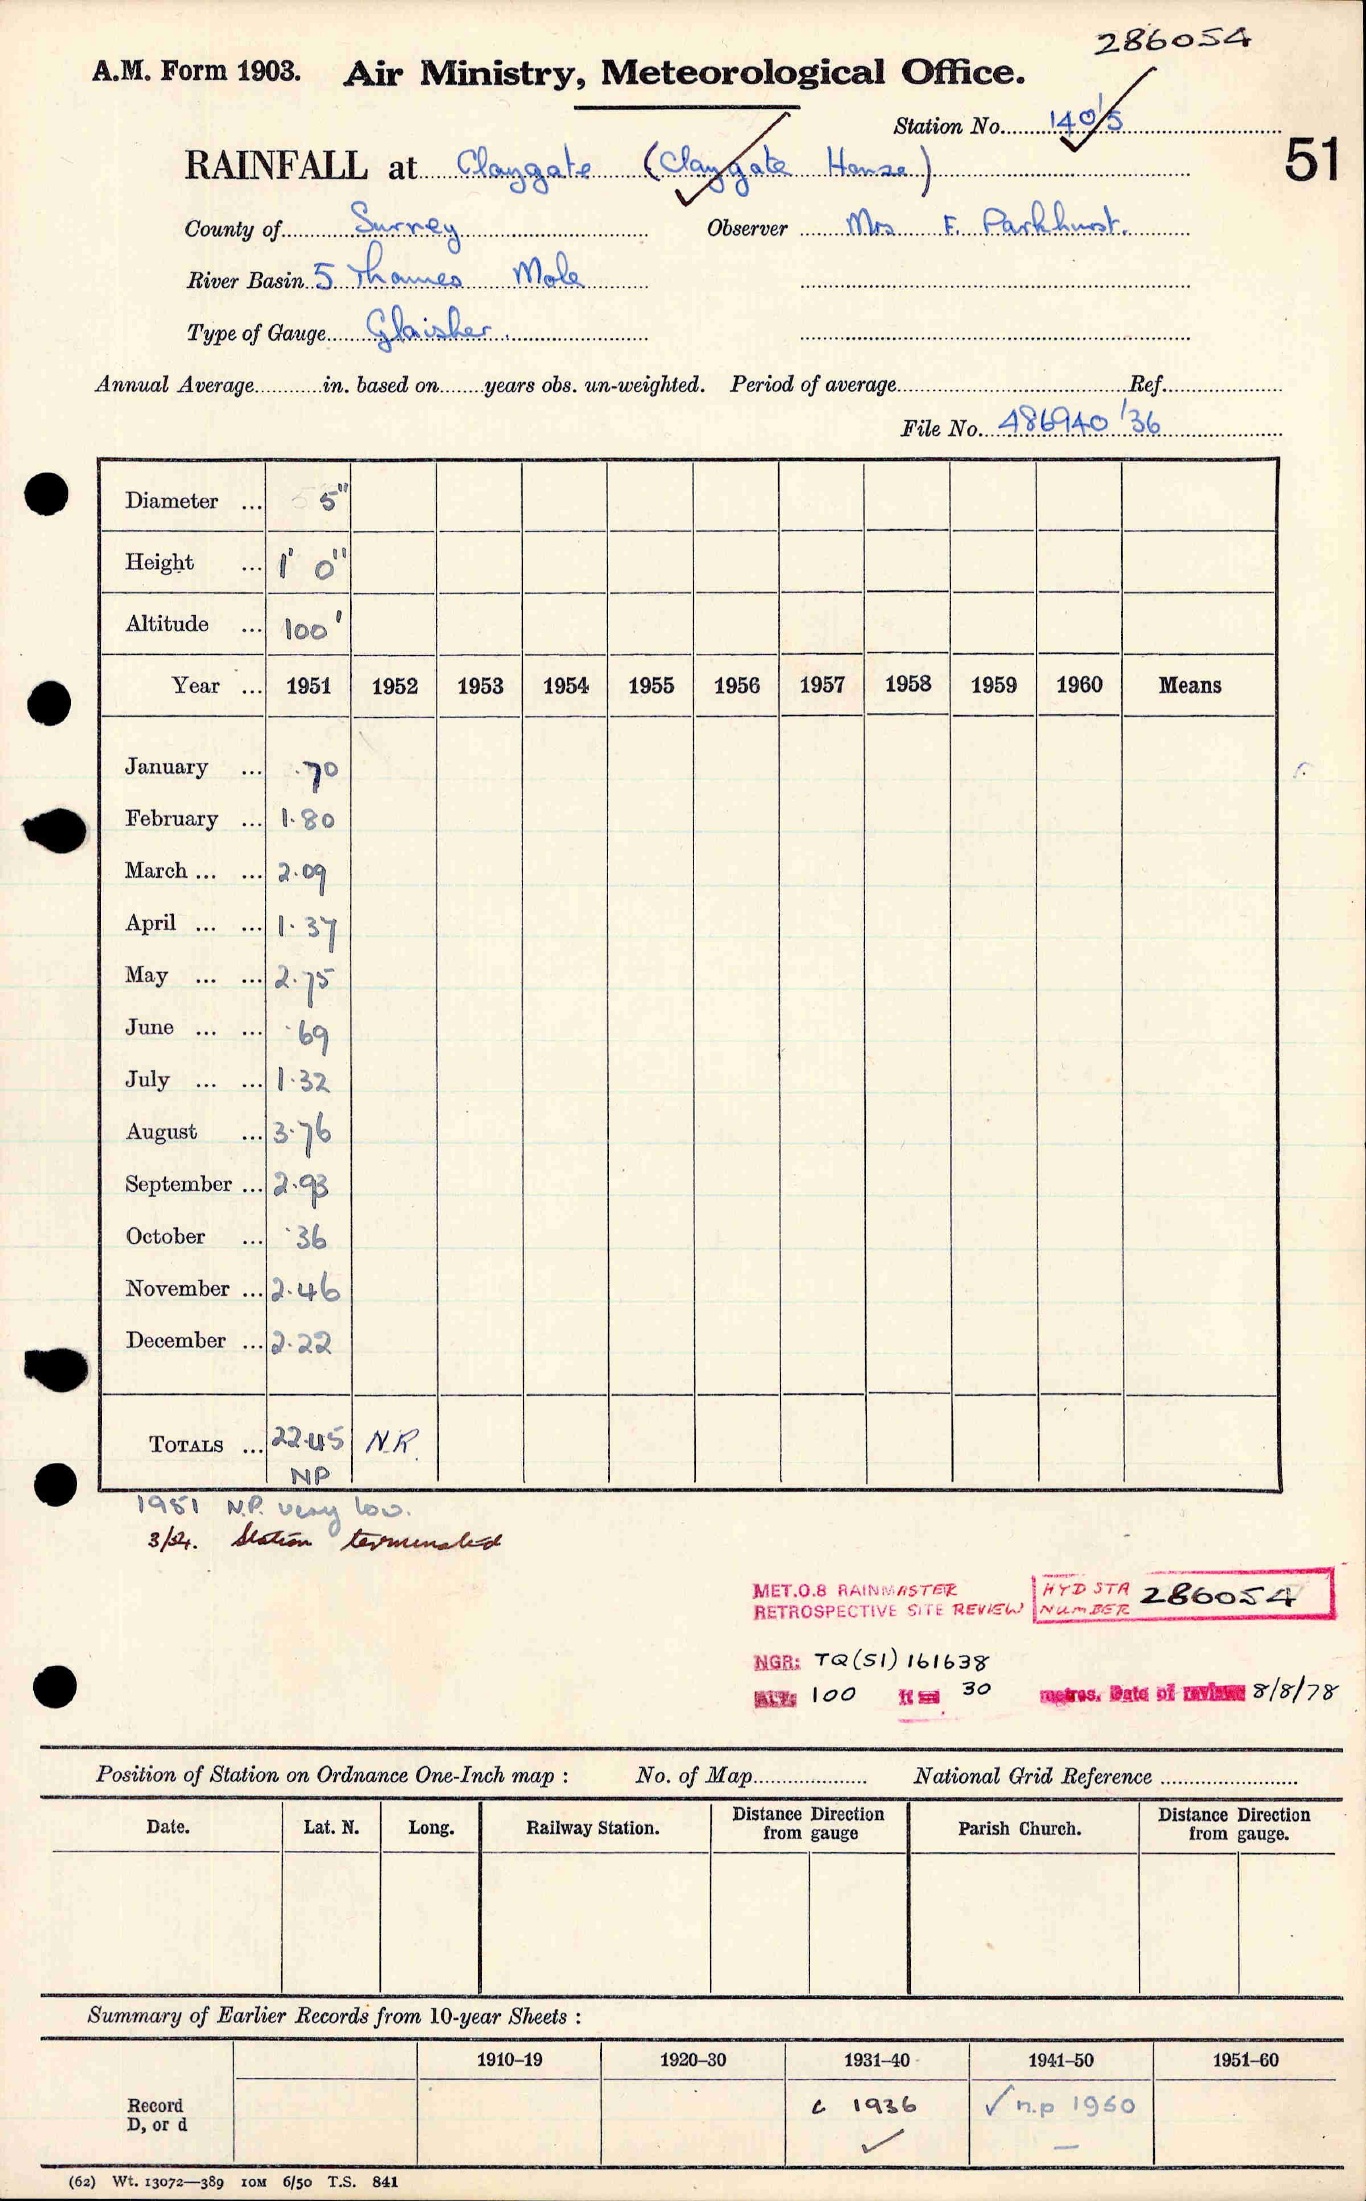 286054
A.M. Form 1903. Air Ministry, Meteorological Office.
Station No. 140/5
51
RAINFALL at Claygate (Claygate House)
County of Surrey Observer Mrs F. Parkhurst.
River Basin 5 Thames Mole
Type of Gauge Glaisher.
Annual Average in. based on years obs. un-weighted. Period of average Ref.
File No. 486940/36
Diameter ... 5"
Height ... 1' 0"
Altitude ... 100'
Year ... 1951 1952 1953 1954 1955 1956 1957 1958 1959 1960 Means
January ... .70
February ... 1.80
March ... ... 2.09
April ... ... 1.37
May ... ... 2.75
June ... ... .69
July ... ... 1.32
August ... 3.76
September ... 2.93
October ... .36
November ... 2.46
December ... 2.22
TOTALS ... 22.45 N.R.
NP
1951 N.P. very low.
3/54. Station terminated
MET.O.8 RAINMASTER HYD STA 286054
RETROSPECTIVE SITE REVIEW NUMBER
NGR: TQ(51) 161638
ALT: 100 ft 30 metres. Date of review 8/8/78
Position of Station on Ordnance One-Inch map : No. of Map National Grid Reference
Date. Lat. N. Long. Railway Station. Distance Direction from gauge Parish Church. Distance Direction from gauge.
Summary of Earlier Records from 10-year Sheets :
1910–19 1920–30 1931–40 1941–50 1951–60
Record D, or d c 1936 ✓ ✓ n.p 1950 –
(62) Wt. 13072—389 10M 6/50 T.S. 841